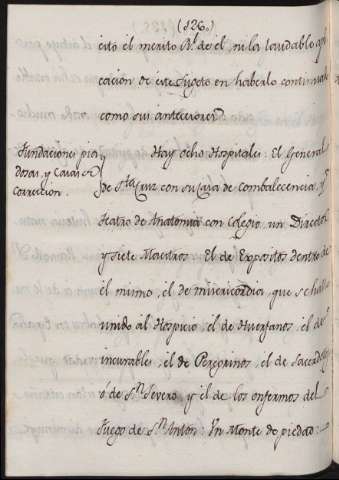 (526.)
cito el merito Rl. de el, ni la laudable apli
cacion de este Sugeto en haberlo continuado
como sus anteriores.
Fundaciones pia
dosas, y Casas de
correccion.
Hay ocho Hospitales: El General
de Sta. Cruz con su Casa de Combalecencia, y
teatro de Anatomia con Colegio, un Director
y siete Maestros: El de Expositos dentro de
el mismo, el de misericordia que se halla
unido al Hospicio, el de Huerfanos, el de
incurables, el de Peregrinos, el de Sacerdotes
ó de Sn. Severo, y el de los enfermos del
fuego de Sn. Anton: Un Monte de piedad: